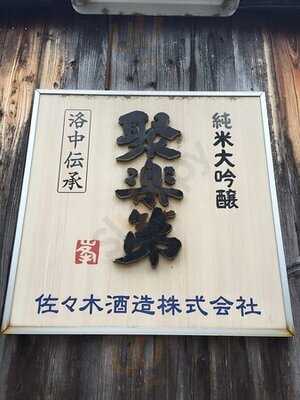 純米大吟醸
聚楽第
洛中伝承
佐々木酒造株式会社